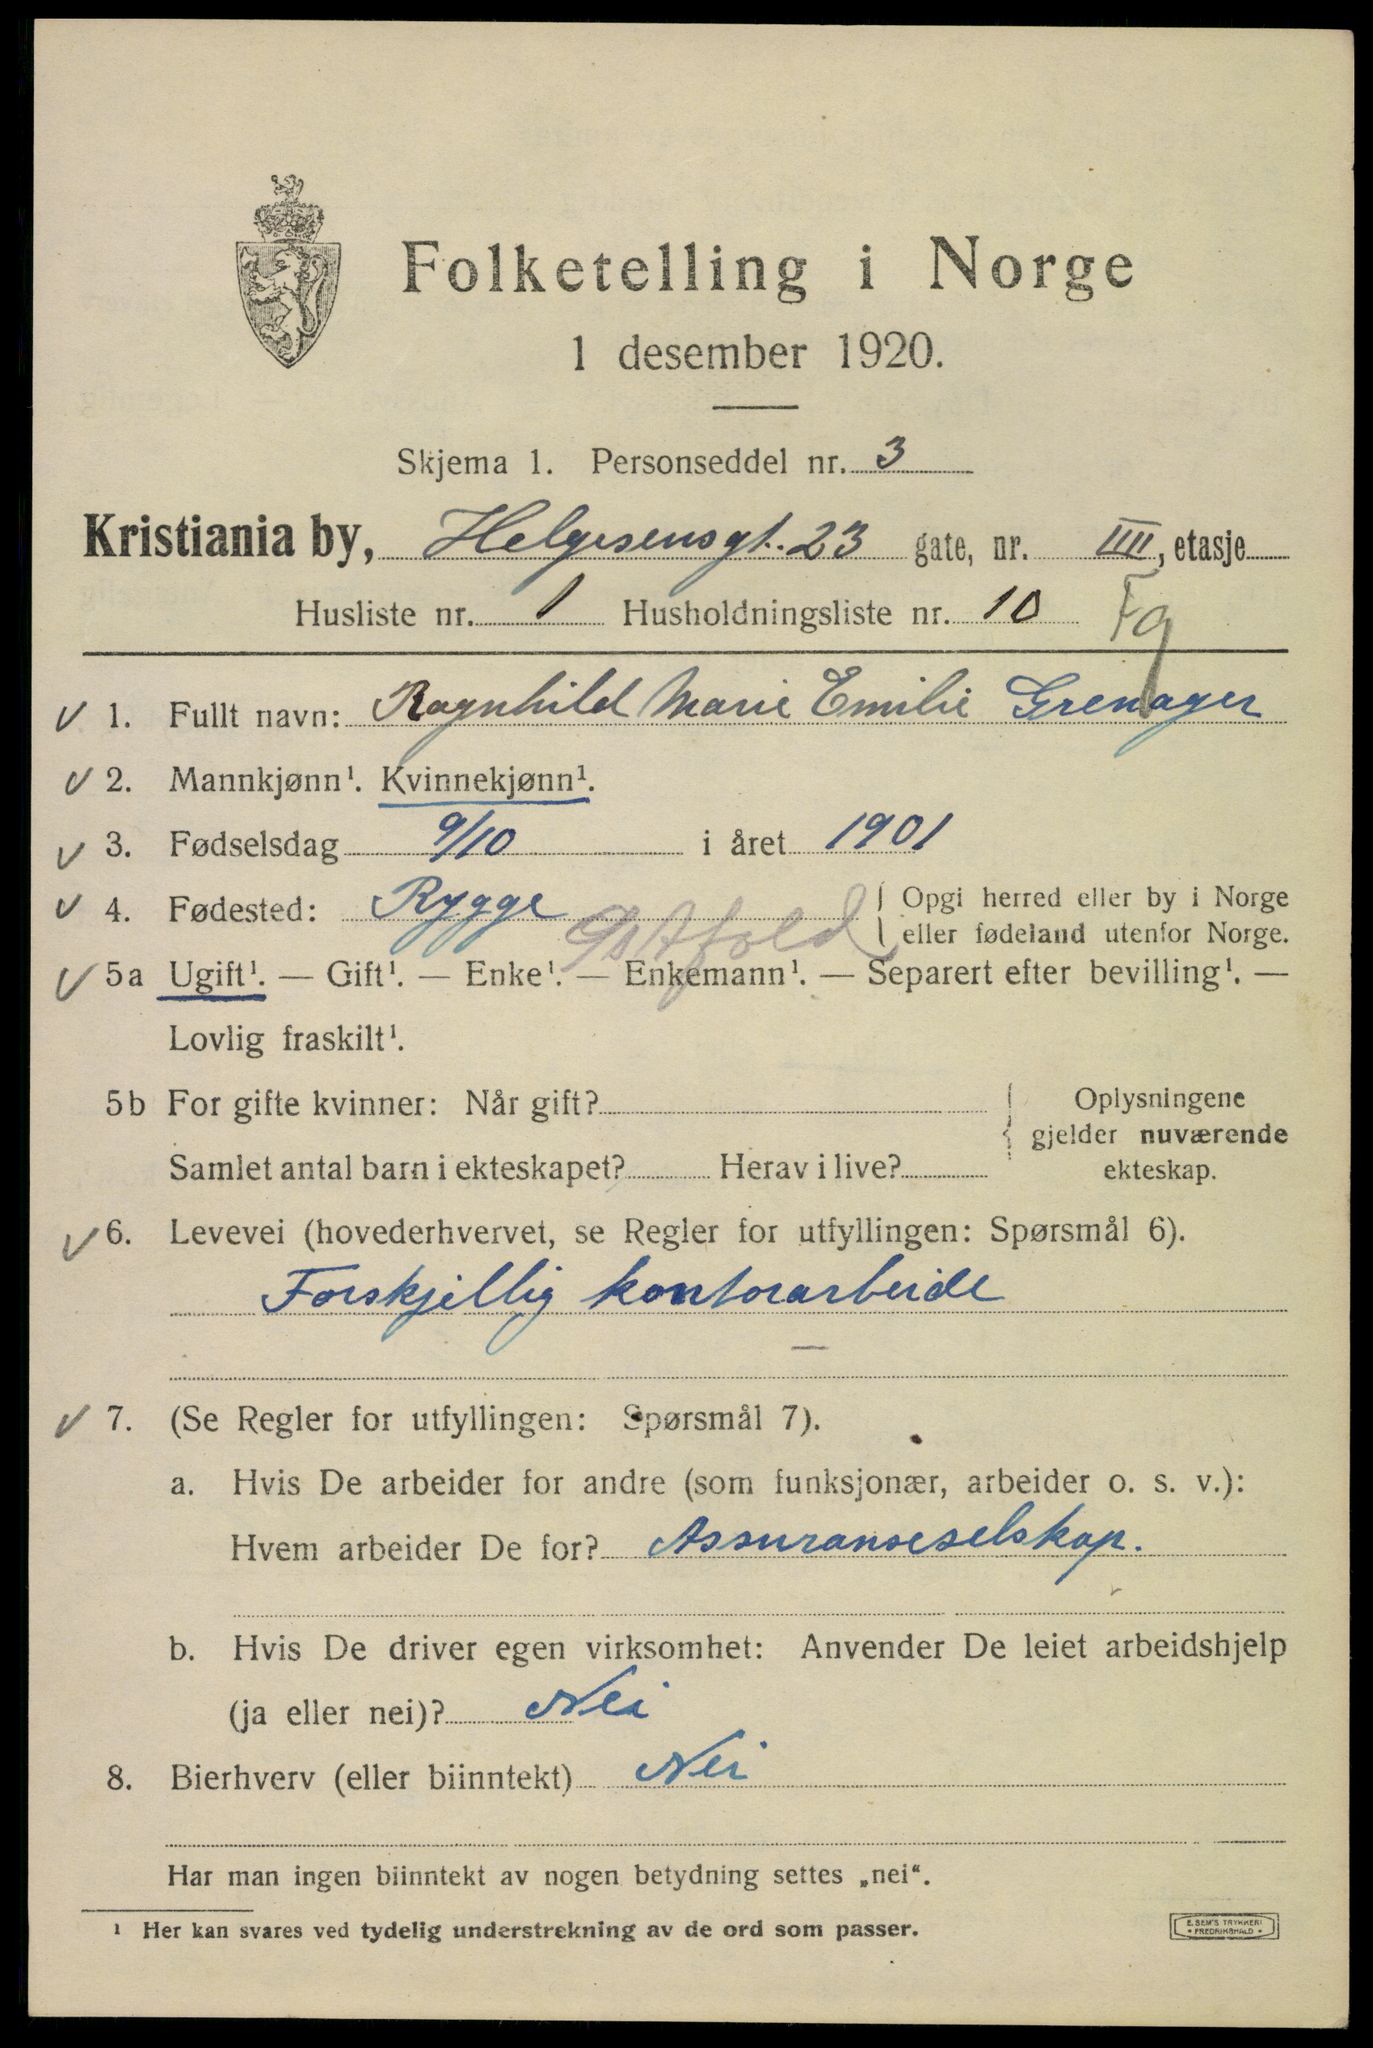 Folketelling i Norge
1 desember 1920.
Skjema 1. Personseddel nr. 3
Kristiania by, Helgesensgt. 23 gate, nr. IIII, etasje
Husliste nr. 1 Husholdningsliste nr. 10 Fg
✓ 1. Fullt navn: Ragnhild Marie Emilie Grenager
✓ 2. Mannkjønn¹. Kvinnekjønn¹.
✓ 3. Fødselsdag 9/10 i året 1901
✓ 4. Fødested: Rygge Opgi herred eller by i Norge
Østfold eller fødeland utenfor Norge.
✓ 5a Ugift¹. — Gift¹. — Enke¹. — Enkemann¹. — Separert efter bevilling¹. —
Lovlig fraskilt¹.
5b For gifte kvinner: Når gift? Oplysningene
gjelder nuværende
Samlet antal barn i ekteskapet? Herav i live? ekteskap.
✓ 6. Levevei (hovederhvervet, se Regler for utfyllingen: Spørsmål 6).
Forskjellig kontorarbeide
—
✓ 7. (Se Regler for utfyllingen: Spørsmål 7).
a. Hvis De arbeider for andre (som funksjonær, arbeider o. s. v.):
Hvem arbeider De for? Assuranseselskap.
b. Hvis De driver egen virksomhet: Anvender De leiet arbeidshjelp
(ja eller nei)? Nei
8. Bierhverv (eller biinntekt) Nei
Har man ingen biinntekt av nogen betydning settes „nei“.
¹ Her kan svares ved tydelig understrekning av de ord som passer.
E. SEM'S TRYKKERI
• FREDRIKSHALD •